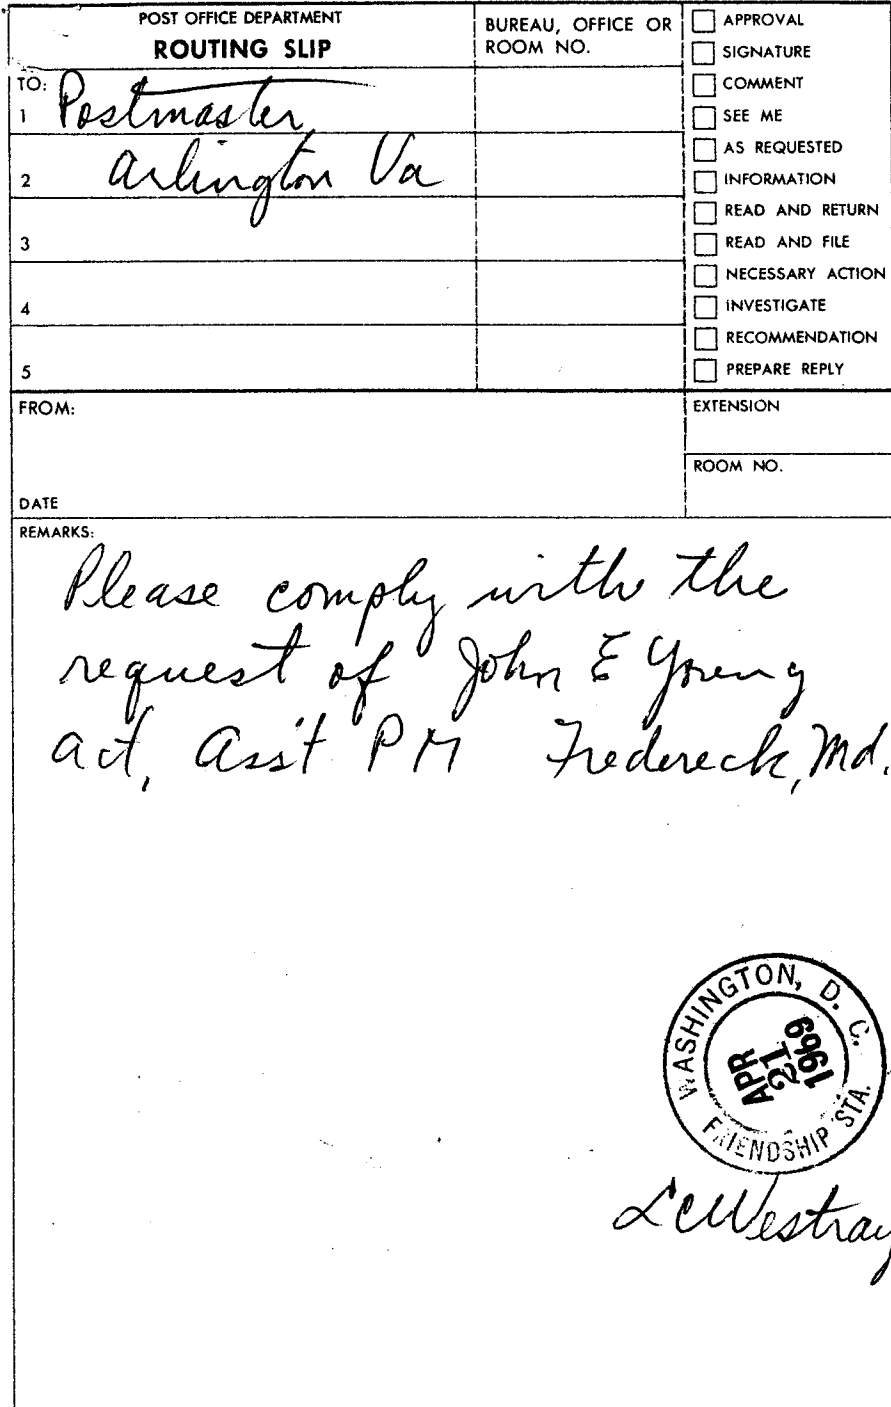 POST OFFICE DEPARTMENT
ROUTING SLIP
BUREAU, OFFICE OR
ROOM NO.
TO:
1 Postmaster
2 Arlington Va
3
4
5
APPROVAL
SIGNATURE
COMMENT
SEE ME
AS REQUESTED
INFORMATION
READ AND RETURN
READ AND FILE
NECESSARY ACTION
INVESTIGATE
RECOMMENDATION
PREPARE REPLY
FROM:
DATE
EXTENSION
ROOM NO.
REMARKS:
Please comply with the
request of John E Young
act, Ass't PM Fredereck, Md.
WASHINGTON, D. C.
APR
21
1969
FRIENDSHIP STA.
LCWestray